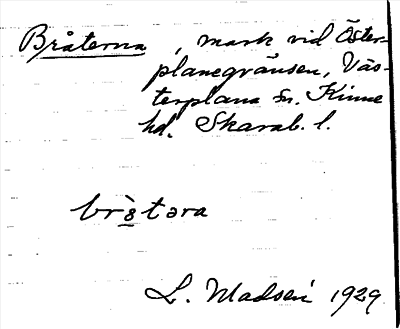 Bråterna, mark vid Öster-
planegränsen, Väs-
terplana sn. Kinne
hd. Skarab. l.
brɔ̀təra
L. Madsén 1929